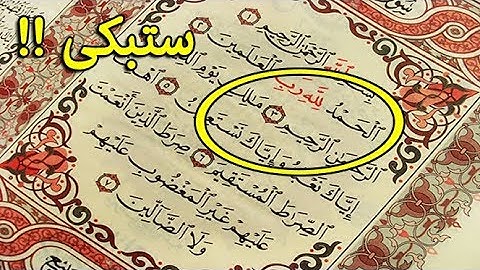 ستبكى !!
سورة
بِسْمِ ٱللَّهِ ٱلرَّحْمَٰنِ ٱلرَّحِيمِ ١
ٱلْحَمْدُ لِلَّهِ رَبِّ ٱلْعَٰلَمِينَ
ٱلرَّحْمَٰنِ ٱلرَّحِيمِ ٣ مَٰلِكِ يَوْمِ
إِيَّاكَ نَعْبُدُ وَإِيَّاكَ نَسْتَعِينُ ٥
ٱلصِّرَٰطَ ٱلْمُسْتَقِيمَ ٦ صِرَٰطَ ٱلَّذِينَ أَنْعَمْتَ
عَلَيْهِمْ غَيْرِ ٱلْمَغْضُوبِ عَلَيْهِمْ
وَلَا ٱلضَّآلِّينَ ٧